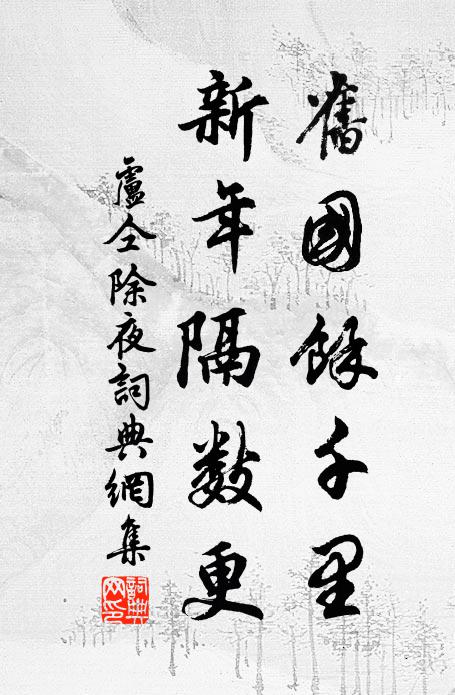 舊國餘千里
新年隔數更
盧仝除夜詞典網集
詞典網印